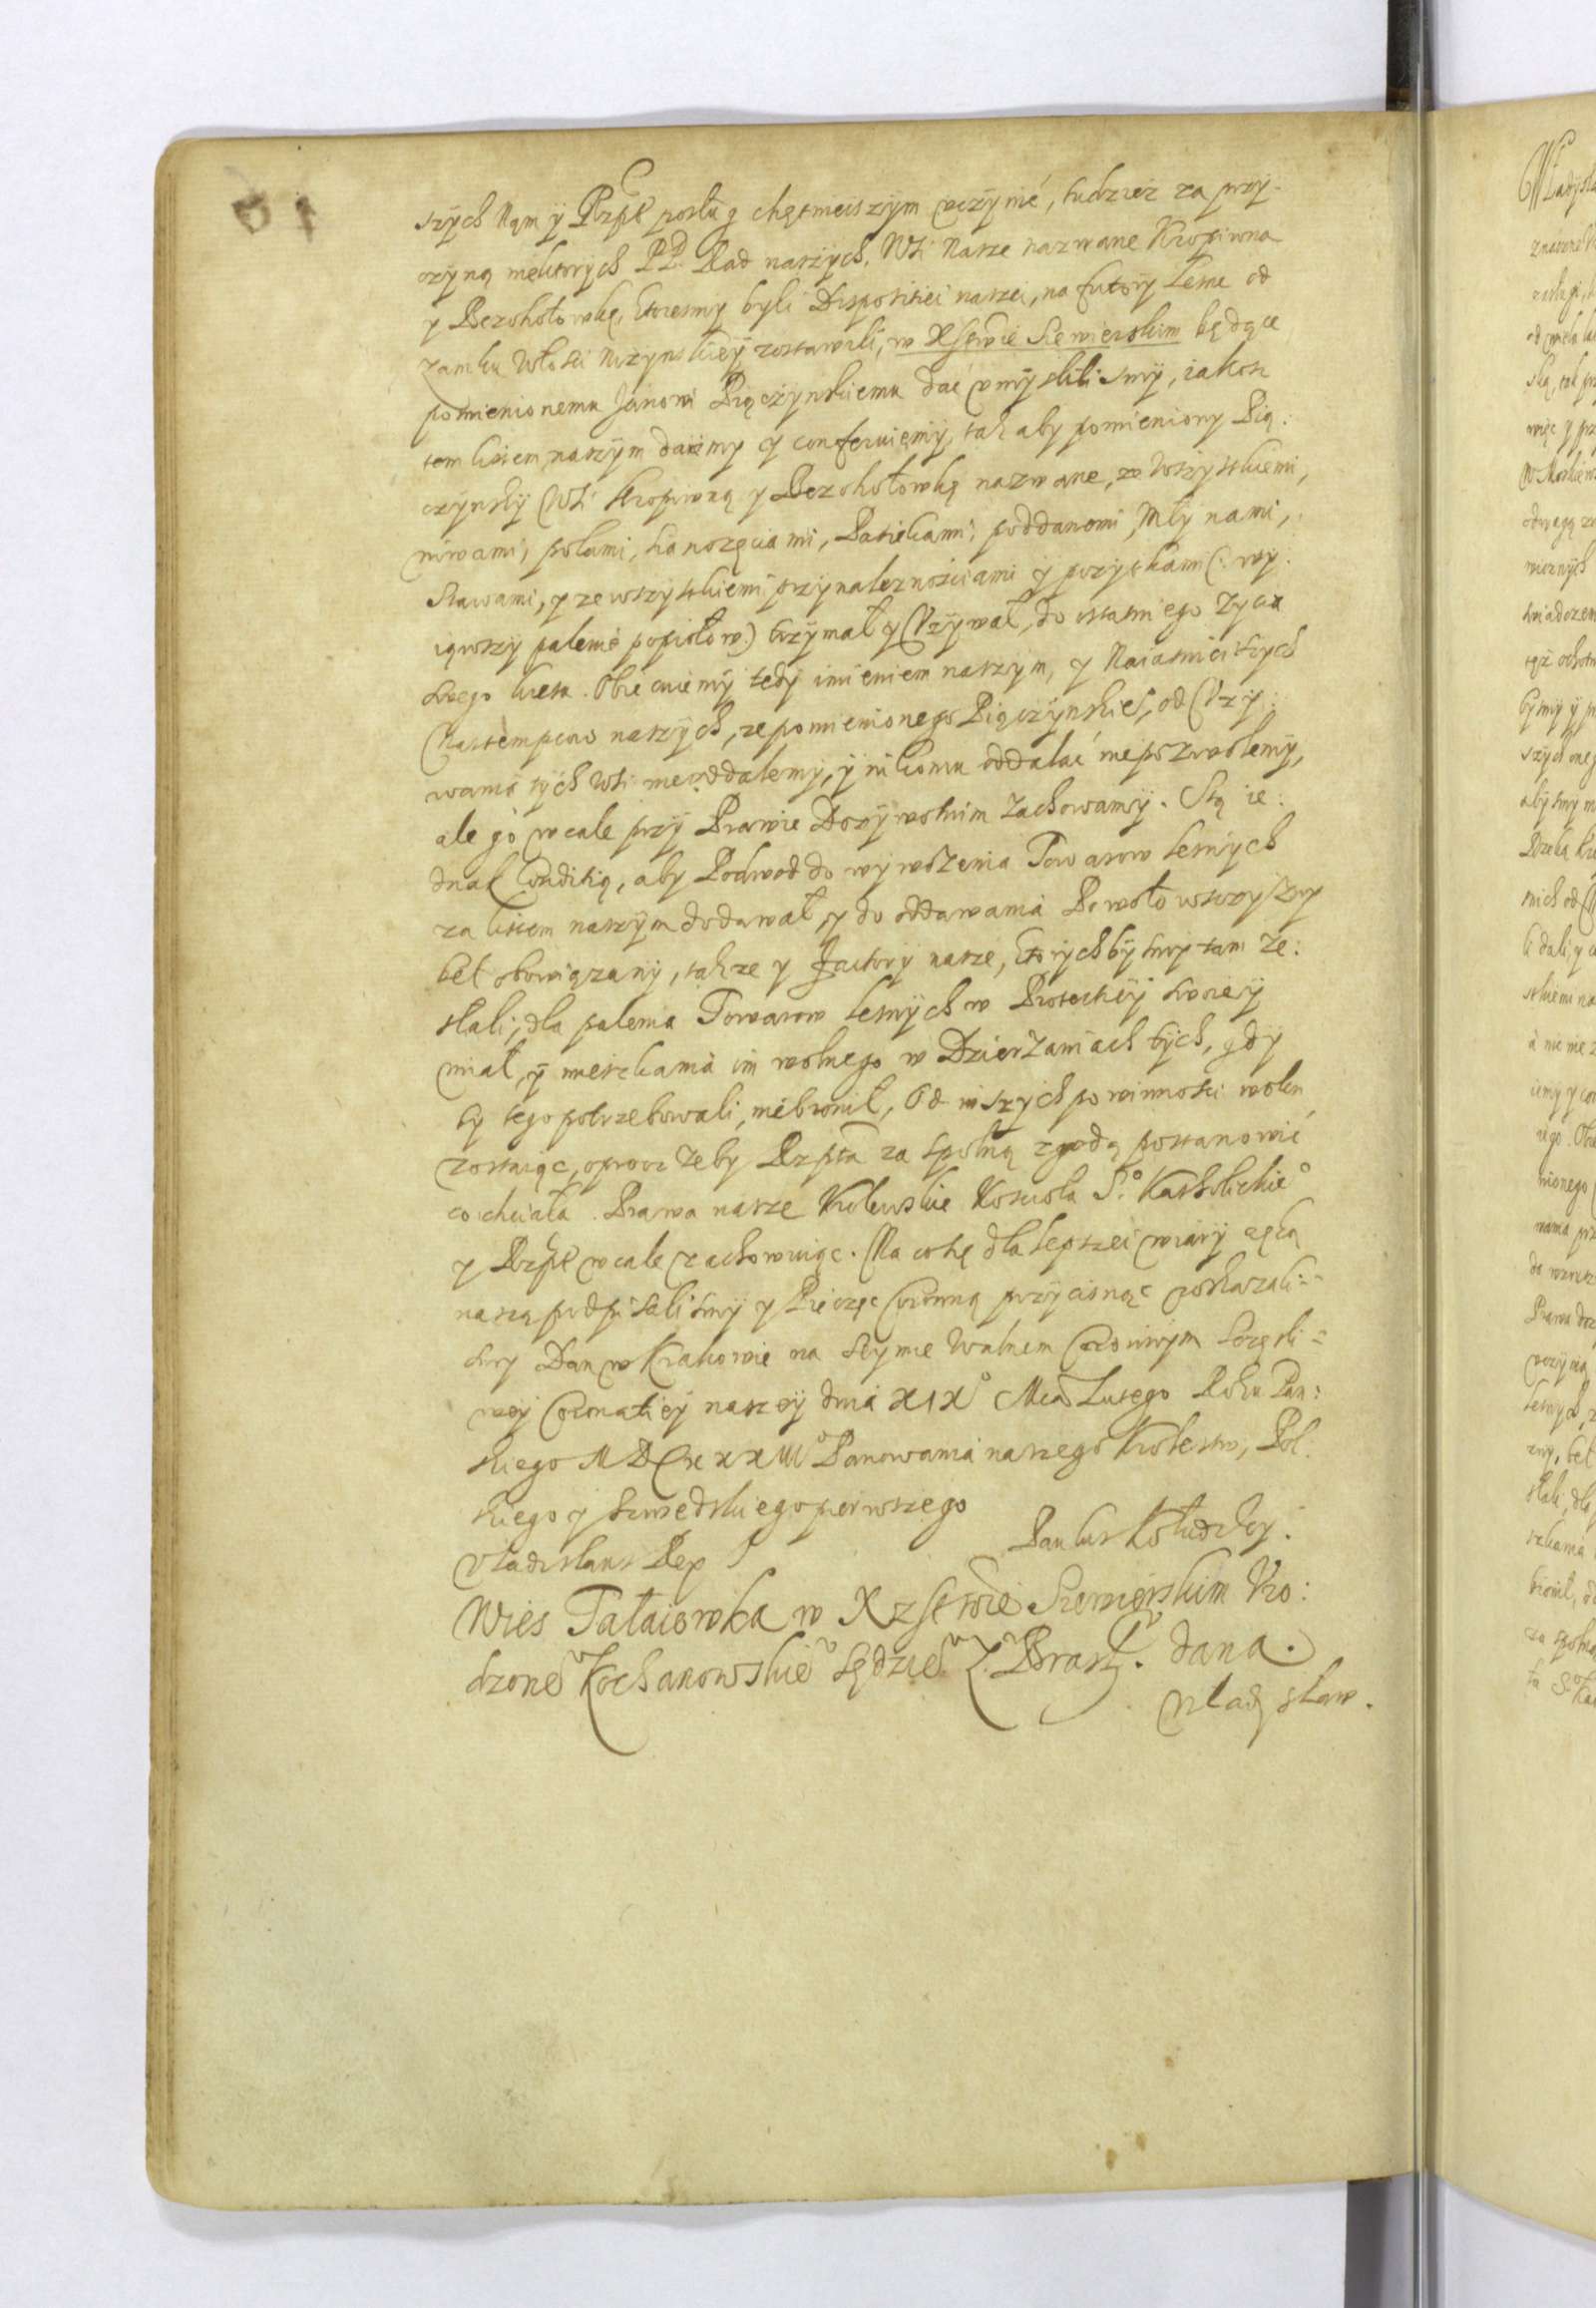 szych Nąm ÿ Rzptt posług chętmieiszym vczÿnić, tudziez za przy-
czÿną niektorÿch PP. Rad naszÿch, Wsi Nasze nazwane Kropiwna
y Bezohołowkę, ktoresmy byli Dispositiei naszei, na futory lesne od
Zamku Włosci Nizynskieÿ zostawili, w Xsęstwie Siewierskim będące
pomienionemu Janowi Piączynskiemu dać vmÿslilismÿ, iakosz
tem listem naszÿm daiemy y conferuięmÿ, tak aby pomieniony Pią:
czynskÿ Wsi Kropiwną y Bezohołowką nazwane, ze wszÿstkiemi,
niwami, polami, sianozęciami, Pasiekami, poddanomi, Młynami,
Stawami, y ze wszystkiemi przynaleznosciami y pozytkami (: wy:
iąwszy palenie popiołow:) trzÿmał y Vzÿwał, do ostatniego Zycia
swego kresu. Obiecuiemÿ tedÿ imieniem naszÿm, y Naiasnieiszych
Nastempcow naszÿch, ze pomienionego Piączÿnskieo, od Vzy:
wania tÿch Wsi nieoddalemy, ÿ nikomu oddalać niepozwolemÿ,
ale go wcale przÿ Prawie Dozÿwotnim Zachowamÿ. Stą ie:
dnak Conditią, aby Podwod do wywozenia Towarow lesnych
za listem naszÿm dodawał, y do oddawania Powołowszczyszny
beł obowiązanÿ, takze y Factory nasze, ktorychbysmy tam ze:
słali, dla palenia Towarow lesnÿch w Protectieÿ swoieÿ
miał, ÿ mieszkania im wolnego w Dzierzaniach tÿch, gdy
by tego potrzebowali, niebronił, Od inszych powinnosci wolen
zostaiąc, oprocz zeby Rzpta za spolną zgodą postanowić
co chciała. Prawa nasze Krolewskie Koscioła S.o Katholickieo
y Rzptt wcale zachowuiąc. Na co się dla lepszei wiarÿ ręką
naszą podpisalismÿ y Pieczęc Coronną przycisnąc roskazali-
smy Dan w Krakowie na Seymie Walnem Coronnym Szczęsli-
wey Coronatieÿ naszeÿ dnia XIXo Mca Lutego Roku Pan:
skiego MDCXXXIIIo Panowania naszego Krolestw, Pol.
skiego y Szwedskiego pierwszego
Vladislaus Rex Paulus Kołudzky.
Wies Tałaiowka w Xzstwie Siewierskim Vro:
dzoneo Kochanowskieo sędzieo Z. Brasł. dana.
Władysław.